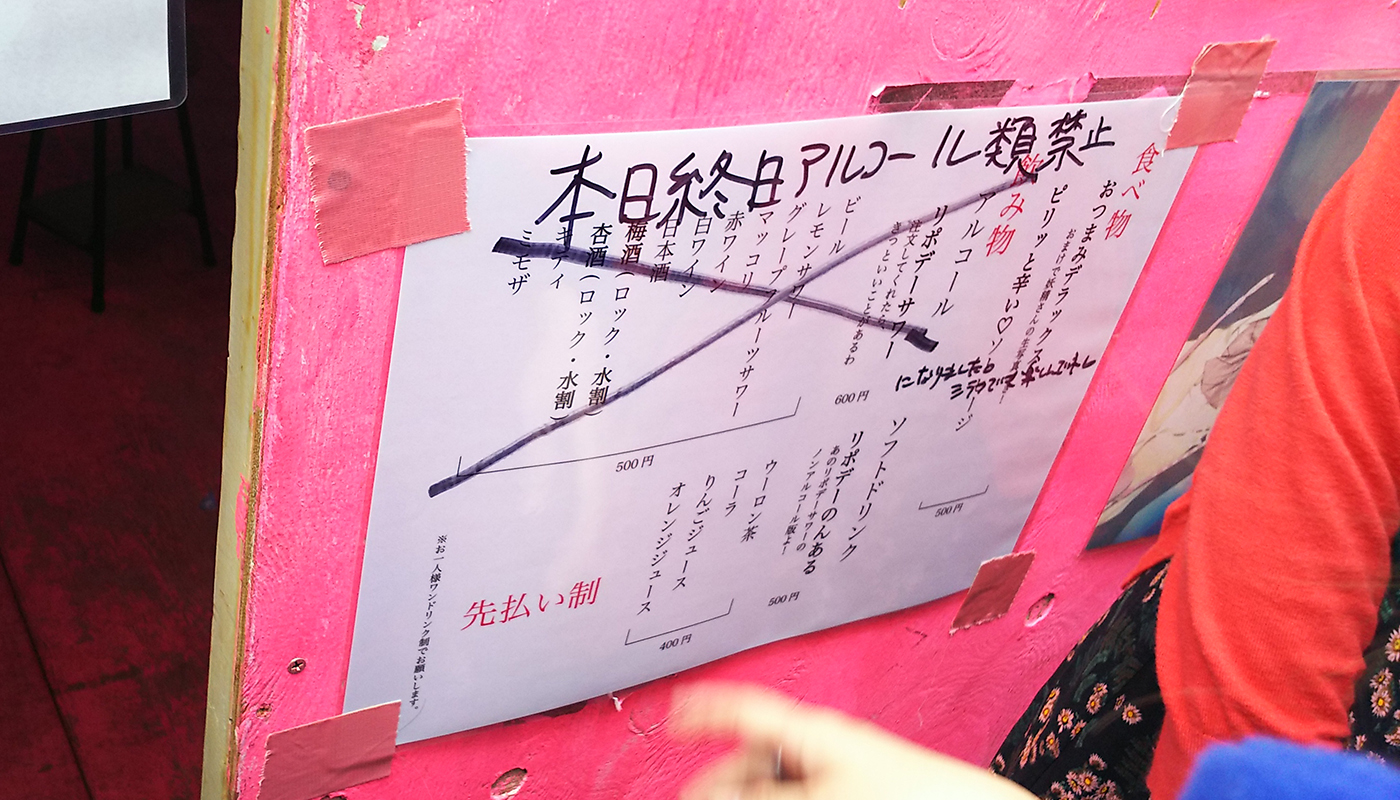 本日終日アルコール類禁止
になりましたら
食べ物
おつまみデラックス
おまけで妖精さんの生写真
ピリッと辛い♡ソ
ージ
500円
飲み物
アルコール
リポデーサワー
注文してくれたら、
きっといいことがあるわ
600円
ビール
レモンサワー
グレープフルーツサワー
マッコリ
赤ワイン
白ワイン
日本酒
梅酒(ロック・水割)
杏酒(ロック・水割)
ミモザ
500円
ソフトドリンク
リポデーのんある
あのリポデーサワーの
ノンアルコール版よ!
500円
ウーロン茶
コーラ
りんごジュース
オレンジジュース
400円
先払い制
※お一人様ワンドリンク制でお願いします。